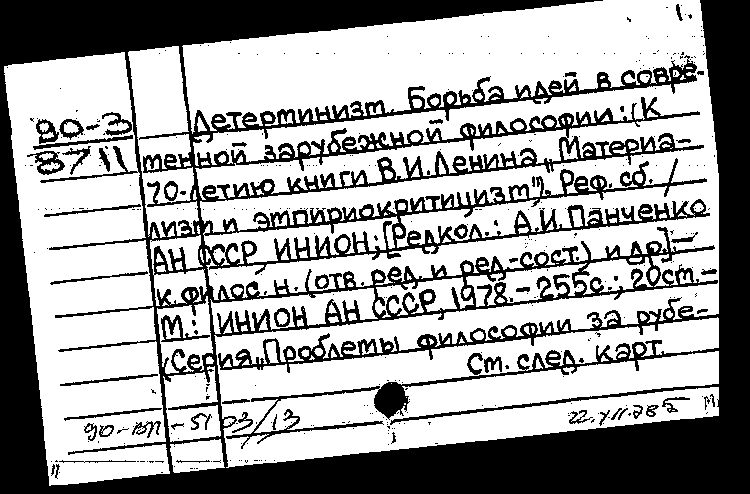 1.
90-3
8711
Детерминизм. Борьба идей в совре-
менной зарубежной философии: (К
70-летию книги В.И.Ленина „Материа-
лизм и эмпириокритицизм"). Реф. сб. /
АН СССР, ИНИОН; [Редкол.: А.И. Панченко
к.филос.н. (отв. ред. и ред.-сост.) и др.].—
М.: ИНИОН АН СССР, 1978. - 255с.; 20см.-
(Серия „Проблемы философии за рубе-
См. след. карт.
90-ВП-51 03/13